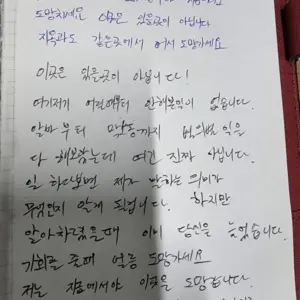 도망치세요 이곳은 있을곳이 아닙니다
지옥과도 같은곳에서 어서 도망가세요
이곳은 있을곳이 아닙니다!
여기저기 어릴때부터 안해본일이 없습니다.
알바부터 막노동까지 별의별 일을
다 해보았는데 여긴 진짜 아닙니다.
일 하다보면 제가 말하는 의미가
무엇인지 알게 됩니다. 하지만
알아차렸을때 이미 당신은 늦었습니다.
기회를 줄때 얼른 도망가세요
저는 지금에서야 이곳을 도망갑니다.